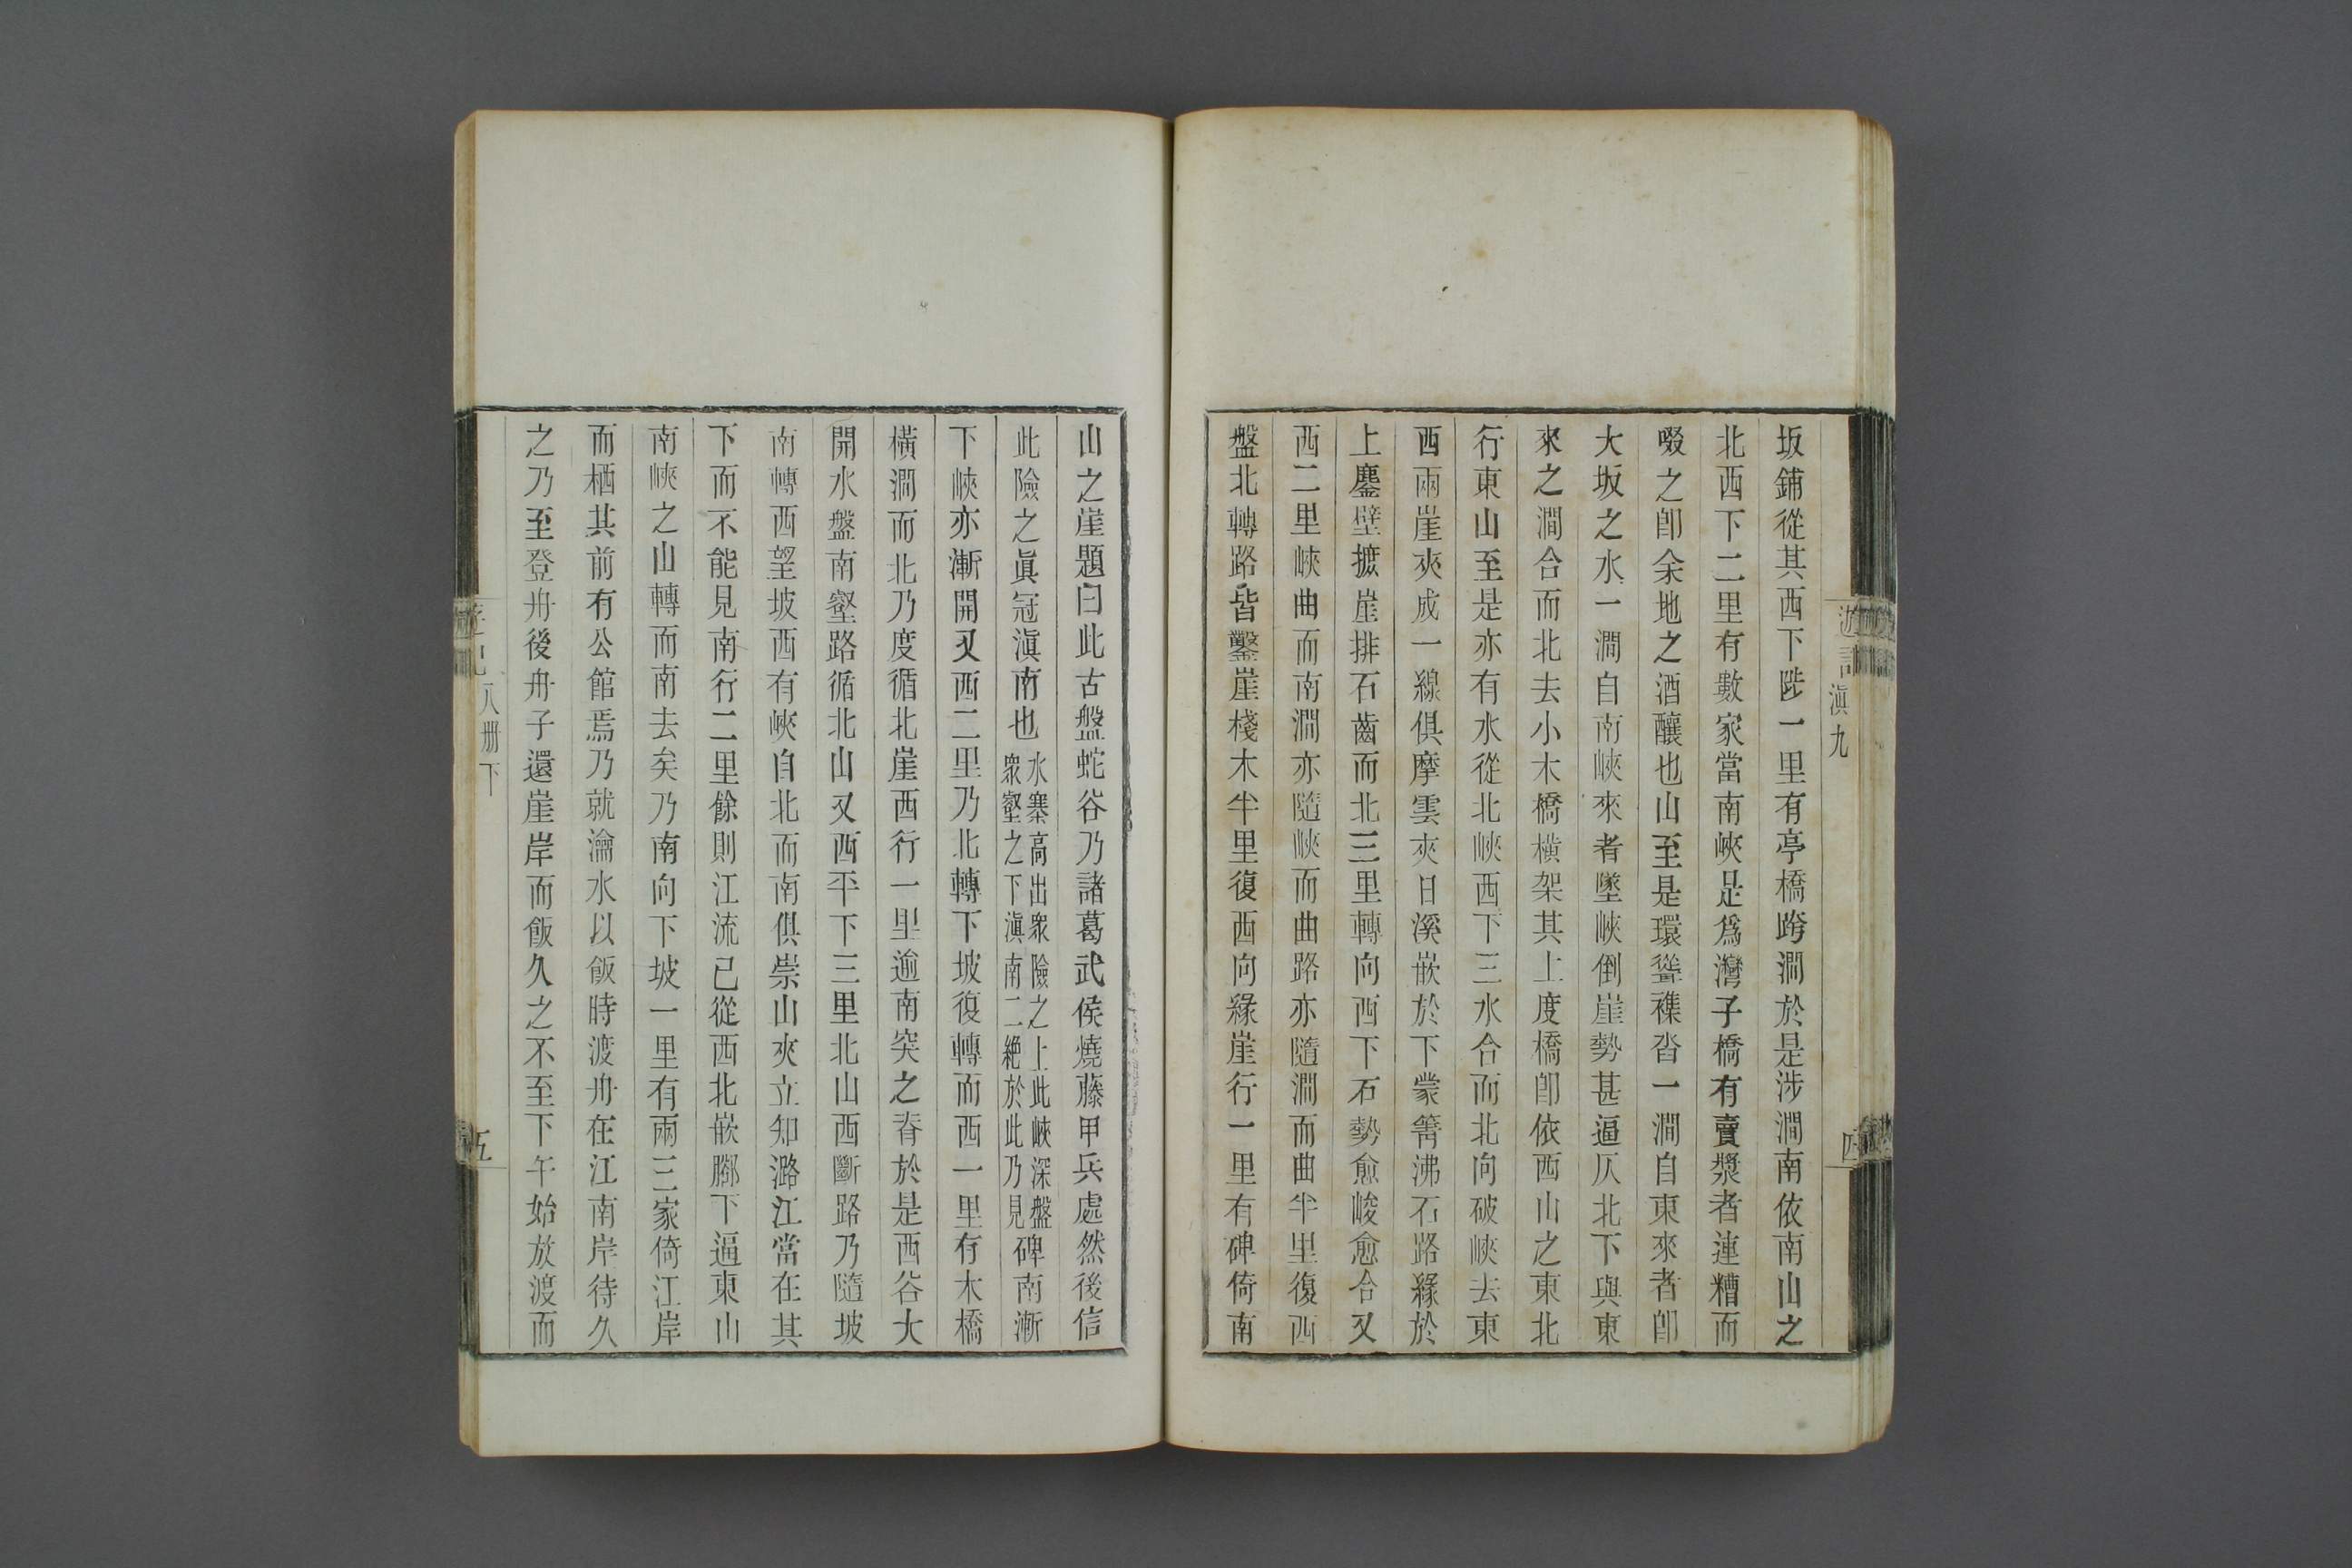 滇九
坂鋪從其西下陟一里有亭橋跨澗於是涉澗南依南山之
北西下二里有數家當南峽是爲灣子橋有賣漿者連糟而
啜之卽余地之酒釀也山至是環聳襍沓一澗自東來者卽
大坂之水一澗自南峽來者墜峽倒崖勢甚逼仄北下與東
來之澗合而北去小木橋橫架其上度橋卽依西山之東北
行東山至是亦有水從北峽西下三水合而北向破峽去東
西兩崖夾成一線俱摩雲夾日溪嵌於下蒙箐沸石路緣於
上鏖壁摭崖排石齒而北三里轉向西下石勢愈峻愈合又
西二里峽曲而南澗亦隨峽而曲路亦隨澗而曲半里復西
盤北轉路皆鑿崖棧木半里復西向緣崖行一里有碑倚南
山之崖題曰此古盤蛇谷乃諸葛武侯燒藤甲兵處然後信
此險之眞冠滇南也水寨高出衆險之上此峽深盤衆壑之下滇南二絕於此乃見碑南漸
下峽亦漸開又西二里乃北轉下坡復轉而西一里有木橋
橫澗而北乃度循北崖西行一里逾南突之脊於是西谷大
開水盤南壑路循北山又西平下三里北山西斷路乃隨坡
南轉西望坡西有峽自北而南俱崇山夾立知潞江當在其
下而不能見南行二里餘則江流已從西北嵌腳下逼東山
南峽之山轉而南去矣乃南向下坡一里有兩三家倚江岸
而栖其前有公館焉乃就瀹水以飯時渡舟在江南岸待久
之乃至登舟後舟子還崖岸而飯久之不至下午始放渡而
八册下
五